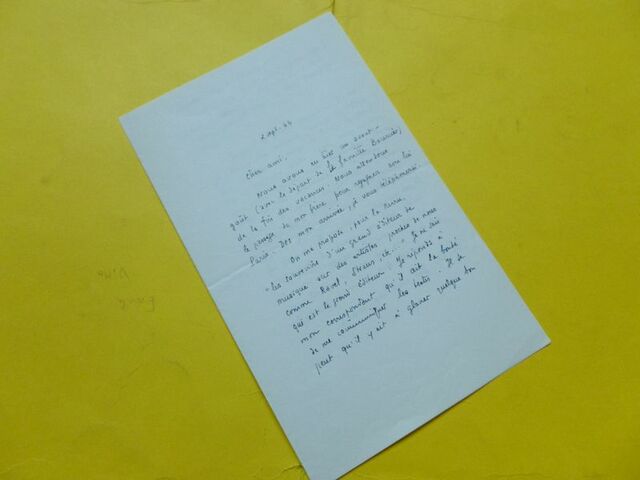 2 sept. 64
Cher ami,
Nous avons eu hier un avant-
goût (avec le départ de la famille
de la fin des vacances. Nous attendons
le passage de mon frère pour regagner avec lui
Paris. Dès mon arrivée, je vous téléphonerai.
On me propose, pour la revue,
"les souvenirs d'un grand éditeur de
musique sur des artistes proches de nous
comme Ravel, Strauss, etc..." Je ne sais
qui est le grand éditeur. Je réponds à
mon correspondant qu'il ait la bonté
de me communiquer les textes. Il se
peut qu'il y ait à glaner quelque bon